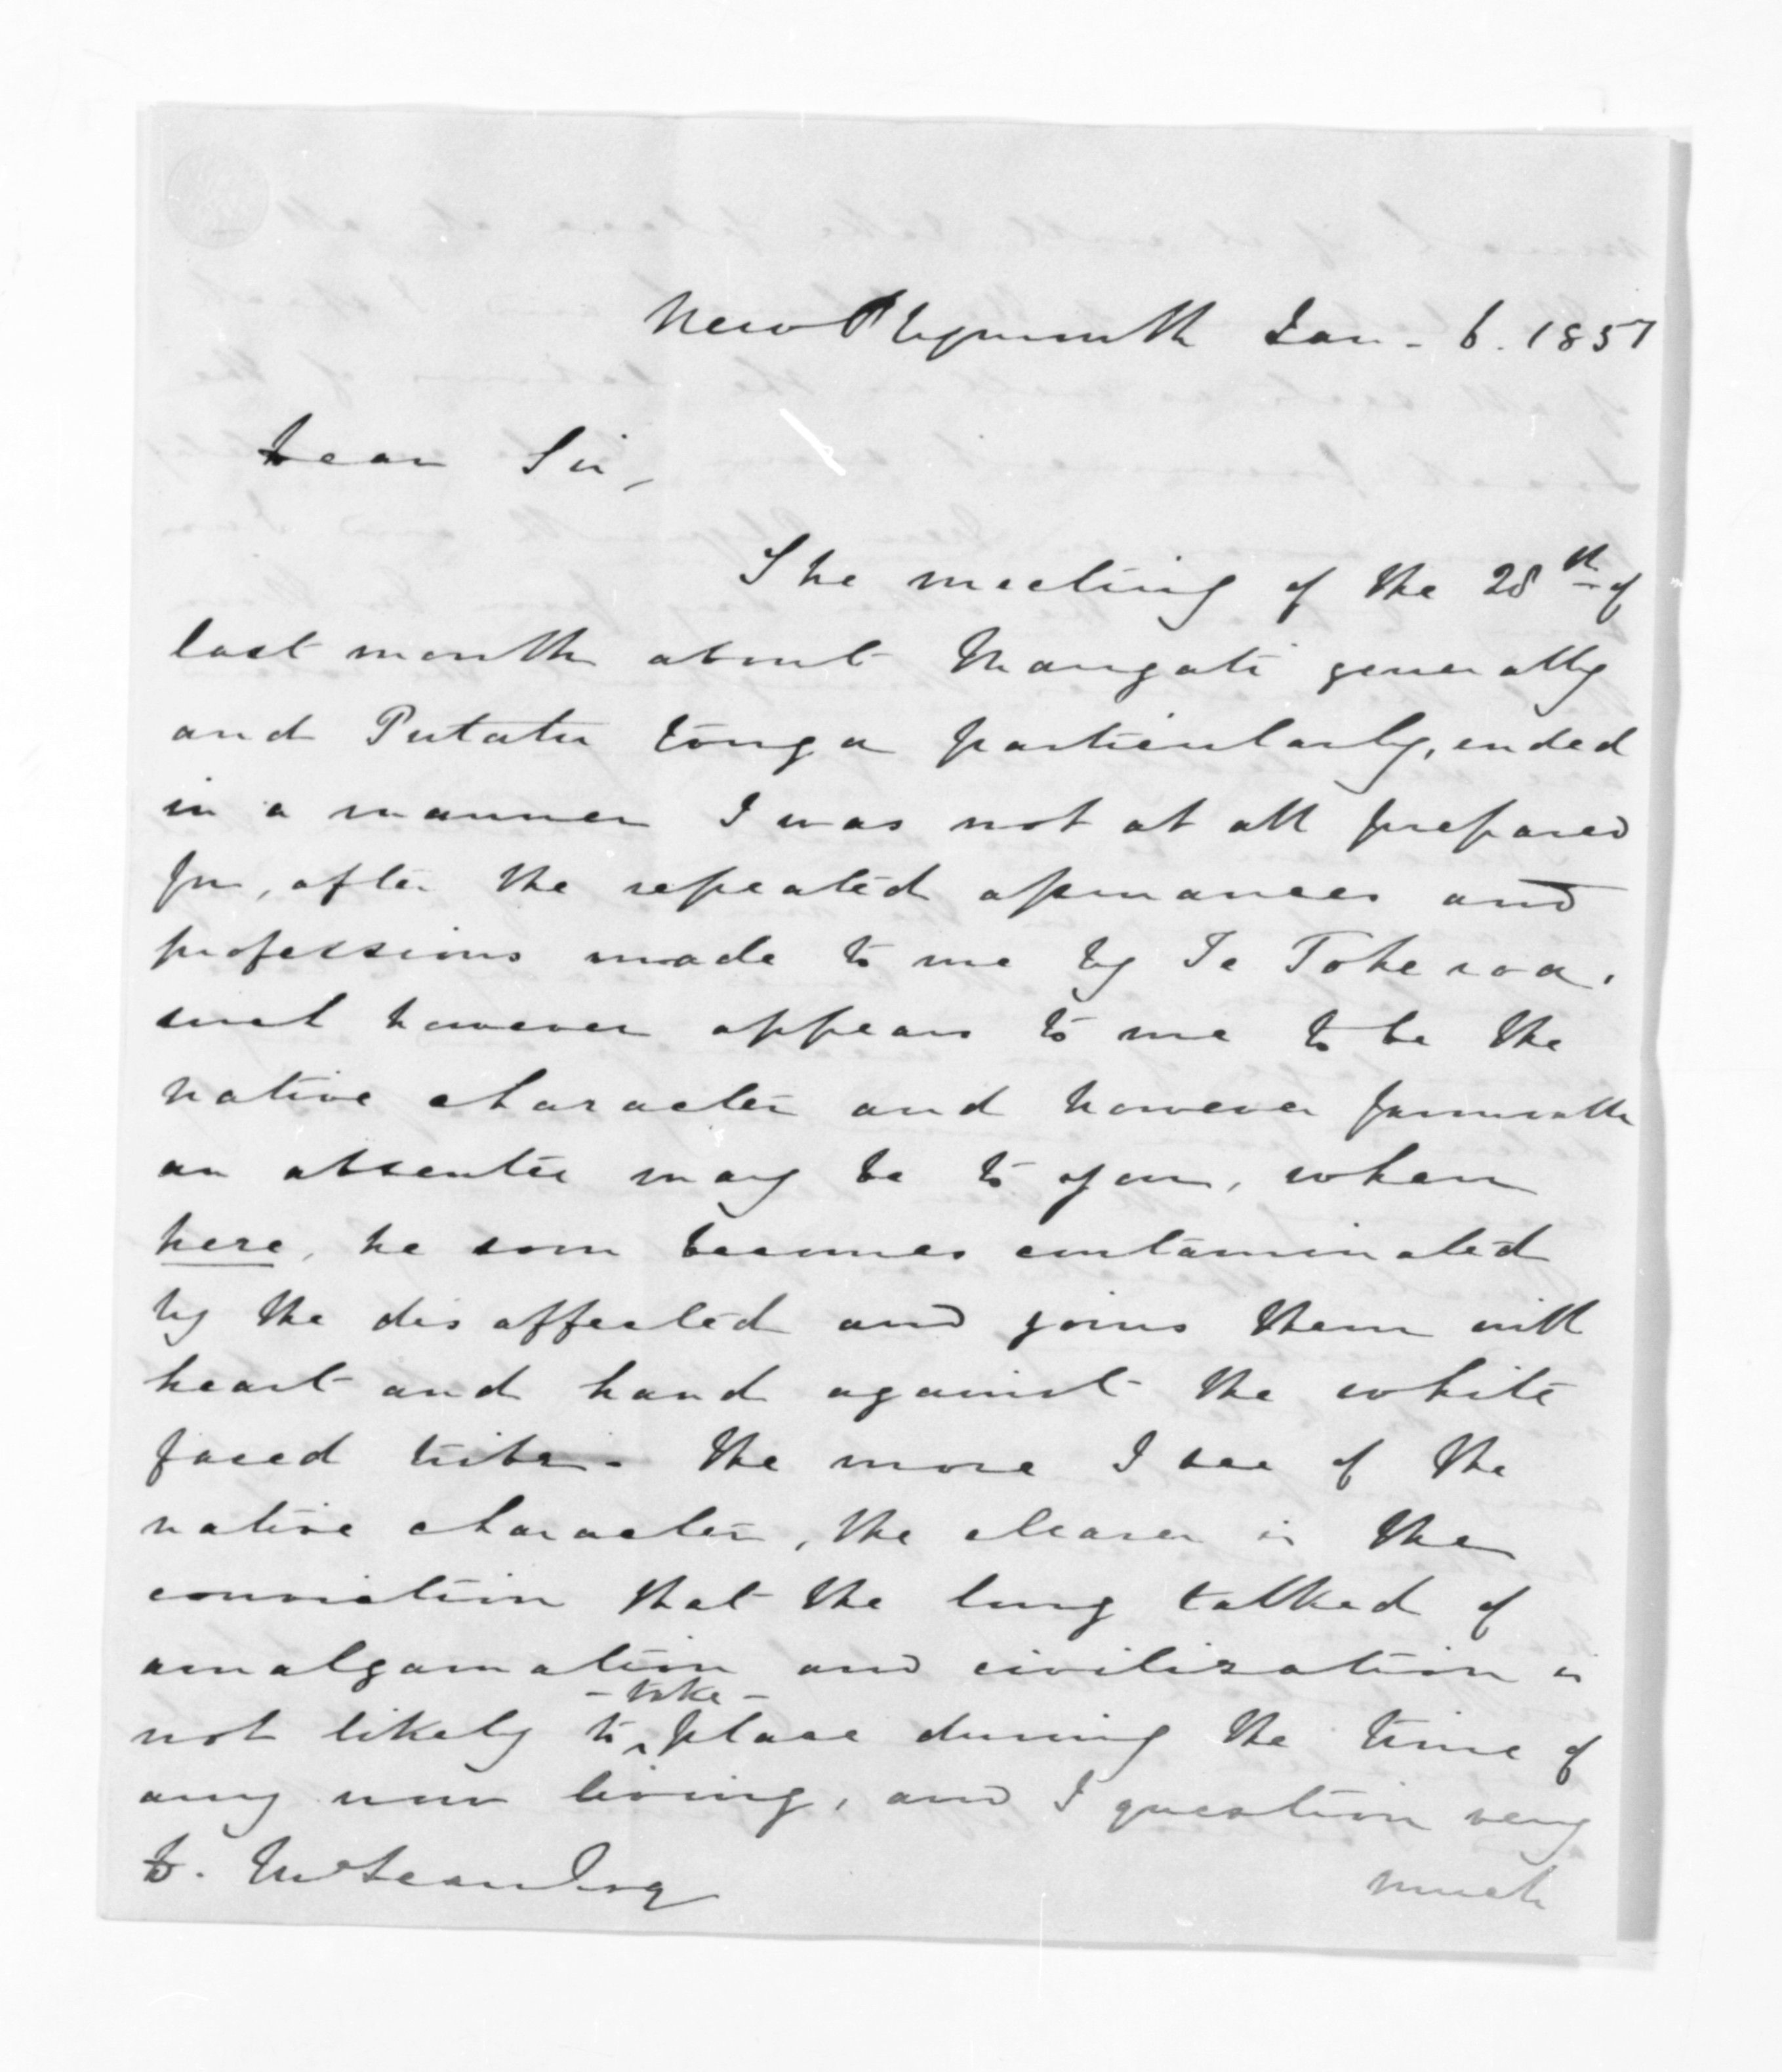 New Plymouth Jan - 6. 1857
Dear Sir,
The meeting of the 28th of
last month about Mangati generally
and Putatu tonga particularly, ended
in a manner I was not at all prepared
for, after the repeated assurances and
professions made to me by Te Tokeroa.
such however appears to me to be the
native character and however favourable
an absentee may be to you, when
here, he soon becomes contaminated
by the disaffected and joins them with
heart and hand against the white
faced tribe - The more I see of the
native character, the clearer is the
conviction that the long talked of
amalgamation and civilization is
- take -
not likely to place during the time of
any now living, and I question very
D. McLean Esq much